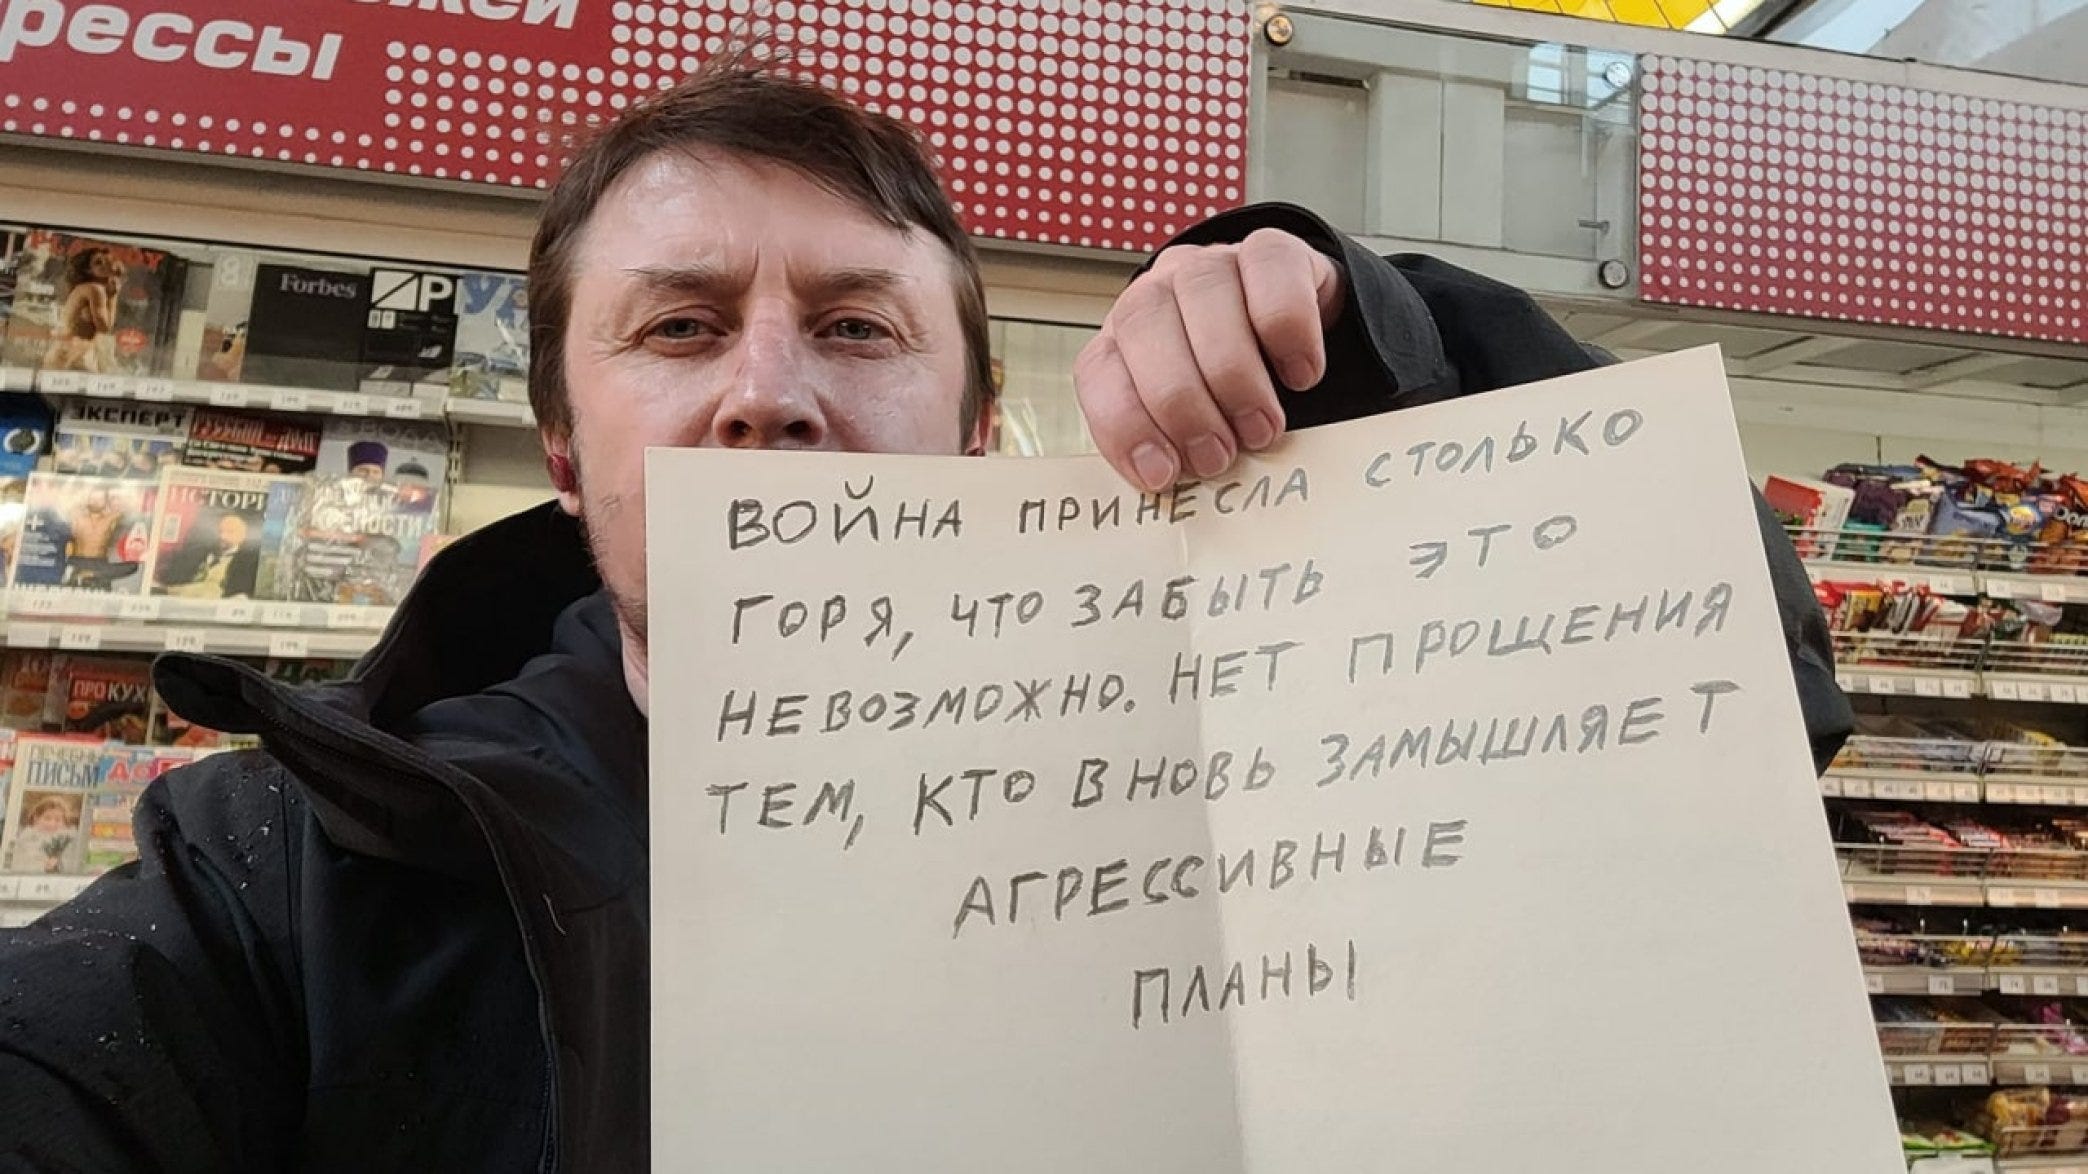 рессы
PLAYBOY
Forbes
ЭКСПЕРТ
ИСТОРИ
КРЕПОСТИ
ПРО КУХ
ПИСЬМ
ВОЙНА ПРИНЕСЛА СТОЛЬКО
ГОРЯ, ЧТО ЗАБЫТЬ ЭТО
НЕВОЗМОЖНО. НЕТ ПРОЩЕНИЯ
ТЕМ, КТО ВНОВЬ ЗАМЫШЛЯЕТ
АГРЕССИВНЫЕ
ПЛАНЫ